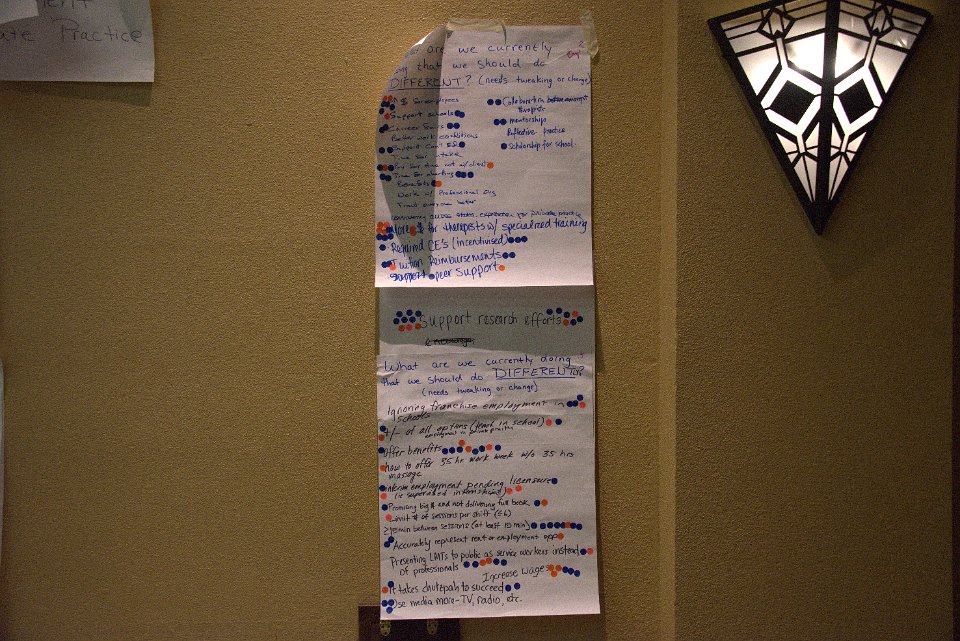 ate Practice
are we currently
that we should do
DIFFERENT? (needs tweaking or change)
Support schools
Career Fairs
Better work conditions
Support Can't
Time for intake
Pay for time not w/client
Time for charting
Benefits
Work w/ Professional Org
Collaboration
Mentorships
Reflective practice
Scholarship for school
for private practice
More $ for therapists w/ specialized training
Required CE's (incentivised)
Tuition Reimbursements
peer support
Support research efforts
What are we currently doing
that we should do DIFFERENTly?
(needs tweaking or change)
Ignoring franchise employment in
schools
+/- of all options (teach in school)
employment vs private practice
Offer benefits
how to offer 35 hr work week w/o 35 hrs
massage
interim employment pending licensure
(ie supervised internship)
Promising big $ and not delivering full book
Limit # of sessions per shift (≤6)
≥15min between sessions (at least 15 min)
Accurately represent rent or employment opp
Presenting LMTs to public as service workers instead
of professionals
Increase wages
It takes chutzpah to succeed
Use media more - TV, radio, etc.